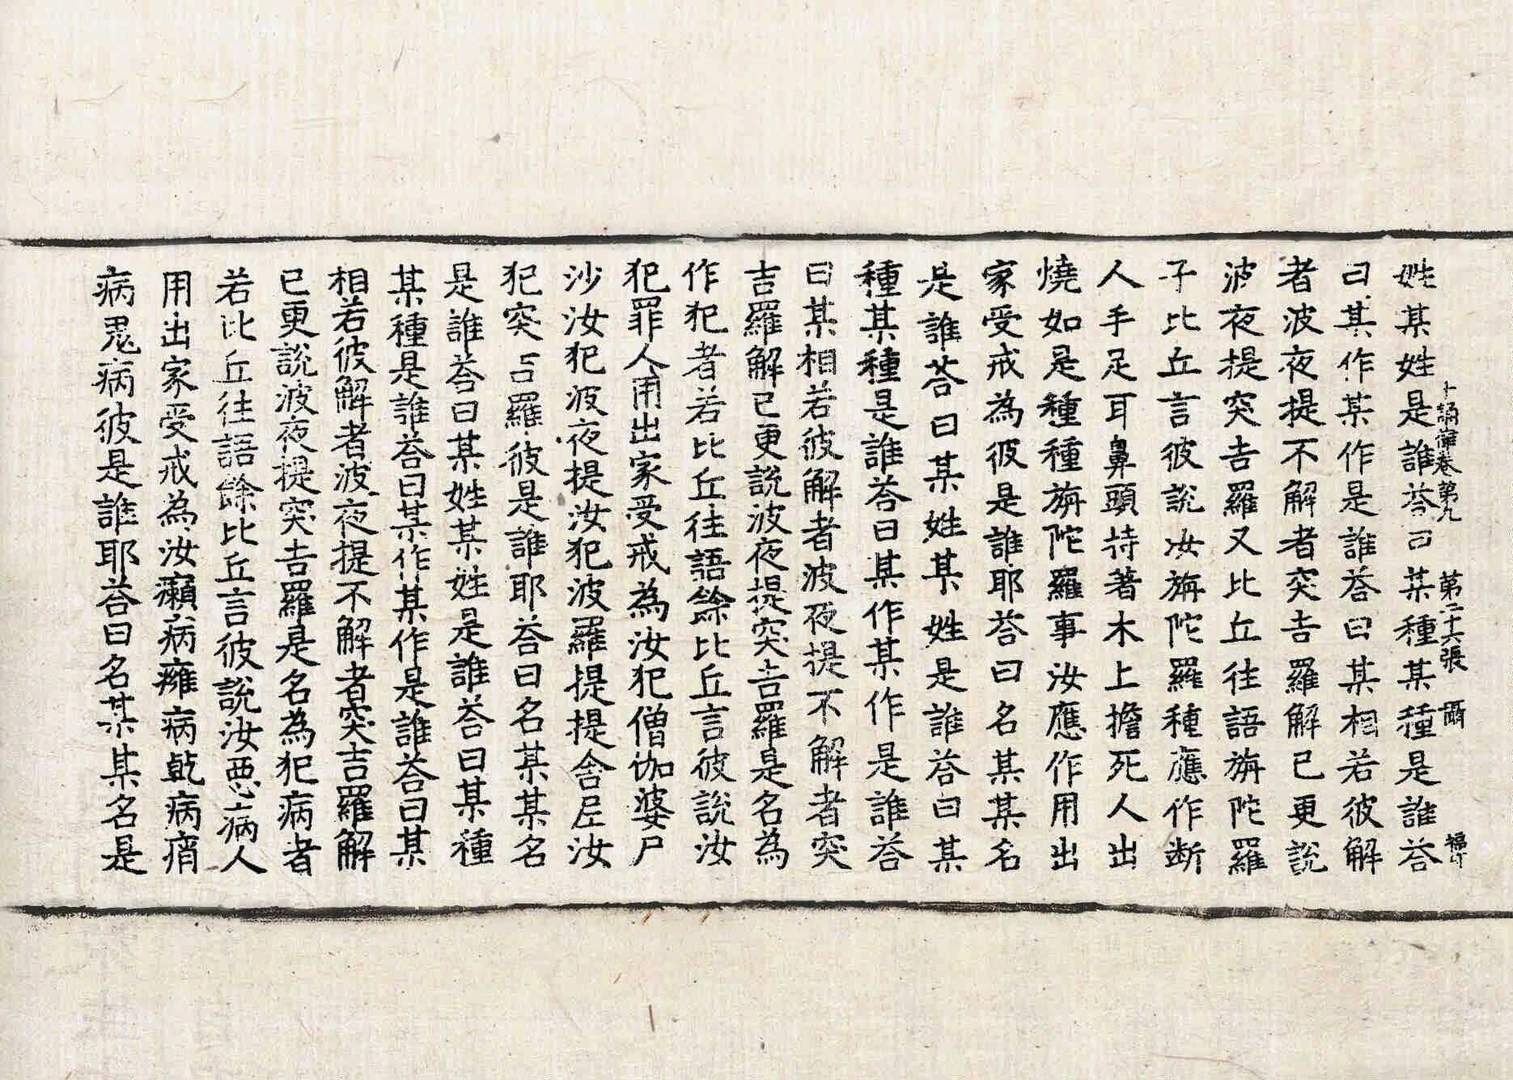 姓某姓是誰荅曰某種某種是誰荅
十誦律卷第九 第二十六張
曰某作某作是誰荅曰某相若彼解
者波夜提不解者突吉羅解已更說
波夜提突吉羅又比丘往語旃陀羅
子比丘言彼說汝旃陀羅種應作斷
人手足耳鼻頭持著木上擔死人出
燒如是種種旃陀羅事汝應作用出
家受戒為彼是誰耶荅曰名某某名
是誰荅曰某姓某姓是誰荅曰某
種某種是誰荅曰某作某作是誰荅
曰某相若彼解者波夜提不解者突
吉羅解已更說波夜提突吉羅是名為
作犯者若比丘往語餘比丘言彼說汝
犯罪人用出家受戒為汝犯僧伽婆尸
沙汝犯波夜提汝犯波羅提提舍尼汝
犯突吉羅彼是誰耶荅曰名某某名
是誰荅曰某姓某姓是誰荅曰某種
某種是誰荅曰某作某作是誰荅曰某
相若彼解者波夜提不解者突吉羅解
已更說波夜提突吉羅是名為犯病者
若比丘往語餘比丘言彼說汝惡病人
用出家受戒為汝癩病癰病乾病痟
病鬼病彼是誰耶荅曰名某某名是